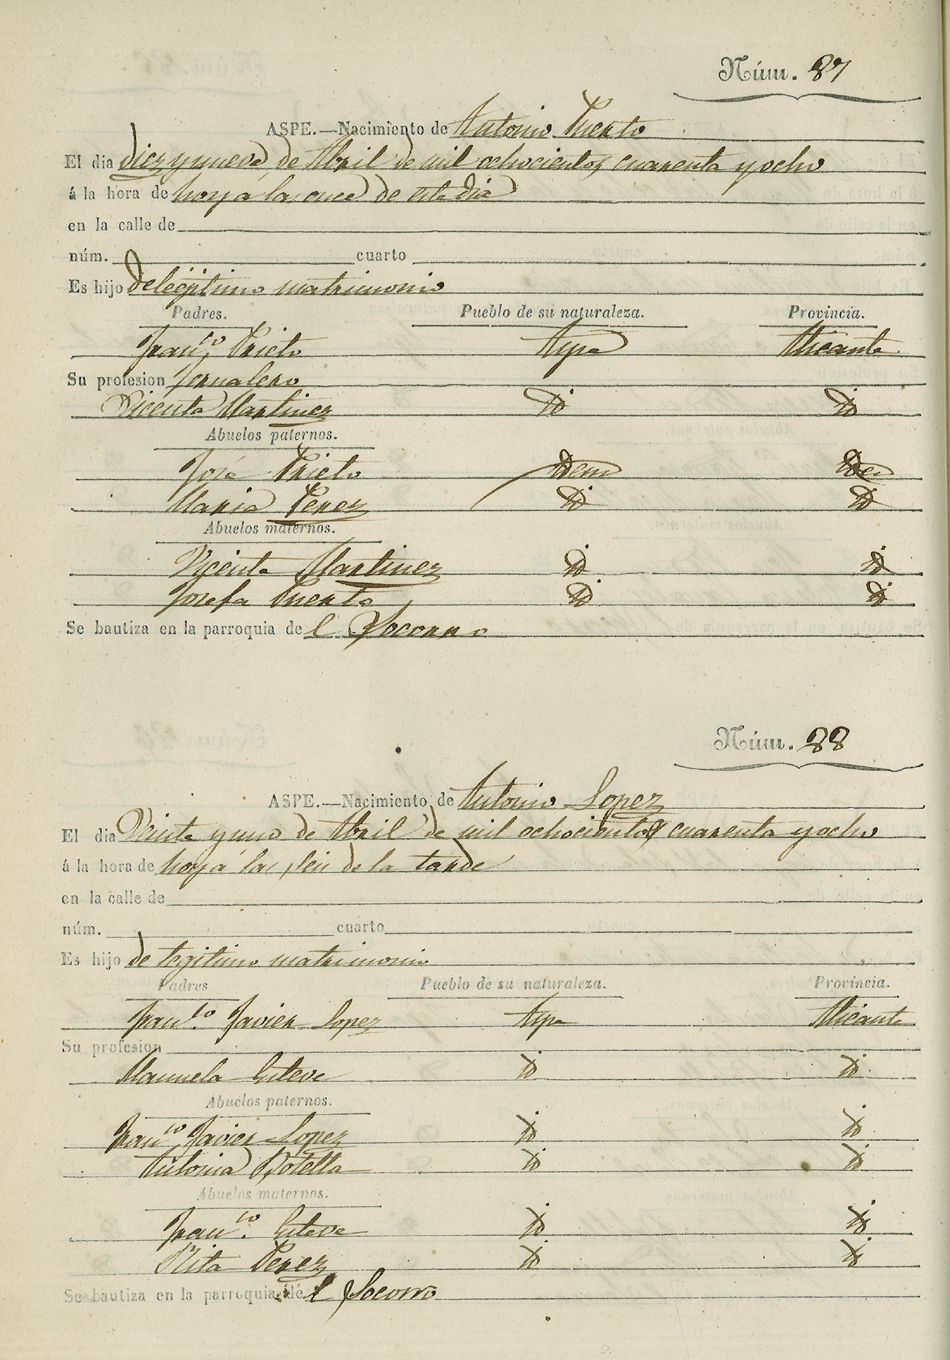 Núm. 87
ASPE.—Nacimiento de Antonio Puerto
El dia diez y nueve de Abril de mil ochocientos cuarenta y ocho
á la hora de hoy a las once de este dia
en la calle de
núm. cuarto
Es hijo de legitimo matrimonio
Padres. Pueblo de su naturaleza. Provincia.
Franco. Prieto Aspe Alicante
Su profesion Jornalero
Vicenta Martinez id id
Abuelos paternos.
José Prieto Idem Idem
Maria Perez id id
Abuelos maternos.
Vicente Martinez id id
Josefa Puerto id id
Se bautiza en la parroquia de l Socorro
Núm. 88
ASPE.—Nacimiento de Antonio Lopez
El dia Veinte y uno de Abril de mil ochocientos cuarenta y ocho
á la hora de hoy a las seis de la tarde
en la calle de
núm. cuarto
Es hijo de legitimo matrimonio
Padres Pueblo de su naturaleza. Provincia.
Franco. Javier Lopez Aspe Alicante
Su profesion
Manuela Esteve id id
Abuelos paternos.
Franco. Javier Lopez id id
Antonia Botella id id
Abuelos maternos.
Franco. Esteve id id
Rita Perez id id
Se bautiza en la parroquia de l Socorro